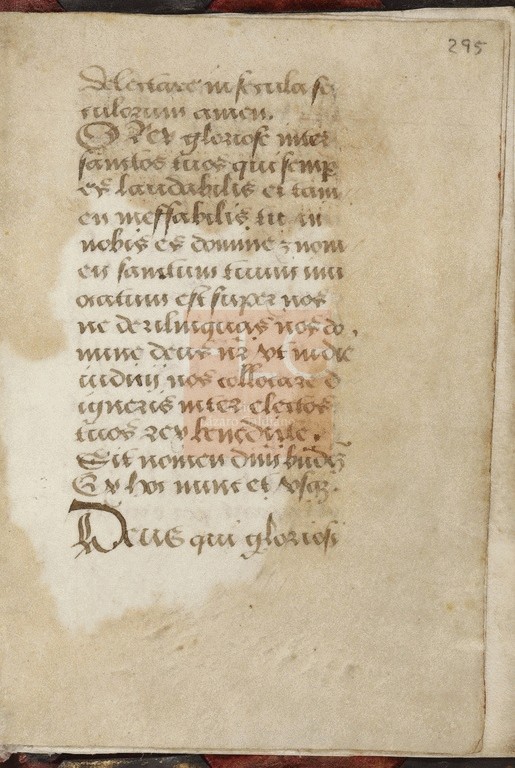 295
delectare in secula se
culorum amen.
O Rex gloriose inter
sanctos tuos qui semp
es laudabilis et tam
en ineffabilis tu in
nobis es domine ⁊ nom
en sanctum tuum inu
ocatum est super nos
ne derelinquas nos do
mine deus nr̄ vt in die
iudicij nos collocare d
igneris inter electos
tuos rex benedicte.
Sit nomen dn̄i
Ex hoc nunc et vsqȝ.
Deus qui gloriosi